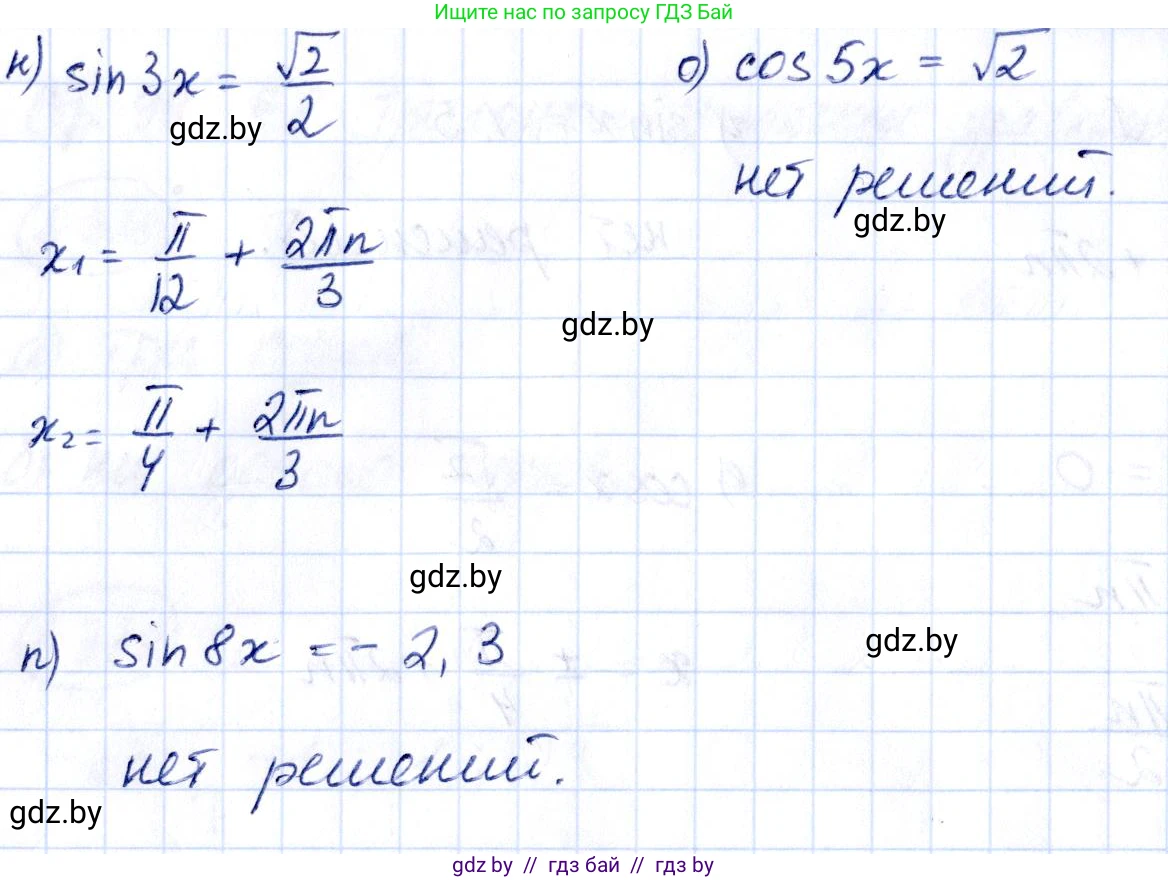 Ищите нас по запросу ГДЗ Бай
н) sin 3x = √2/2
gdz.by
x₁ = π/12 + 2πn/3
x₂ = π/4 + 2πn/3
о) cos 5x = √2
нет решений.
gdz.by
gdz.by
gdz.by
п) sin 8x = - 2,3
gdz.by
нет решений.
gdz.by
gdz.by // гдз бай // гдз by